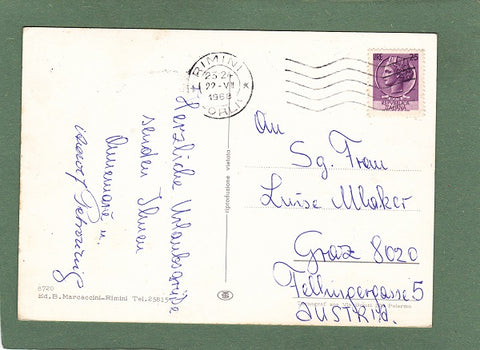 Herzliche Urlaubsgrüße
senden Ihnen
Annemarie u.
RIMINI
23 24
22 -VII
1968
FORLI
riproduzione vietata
8720
Ed. B. Marcaccini-Rimini Tel. 25815
25
REPUBBLICA
An
Sg. Frau
Luise Mlaker
Graz 8020
Fellingergasse 5
AUSTRIA.
Palermo